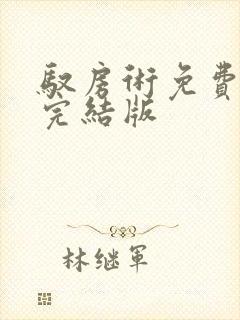 馭房術免費
完結版
林继軍